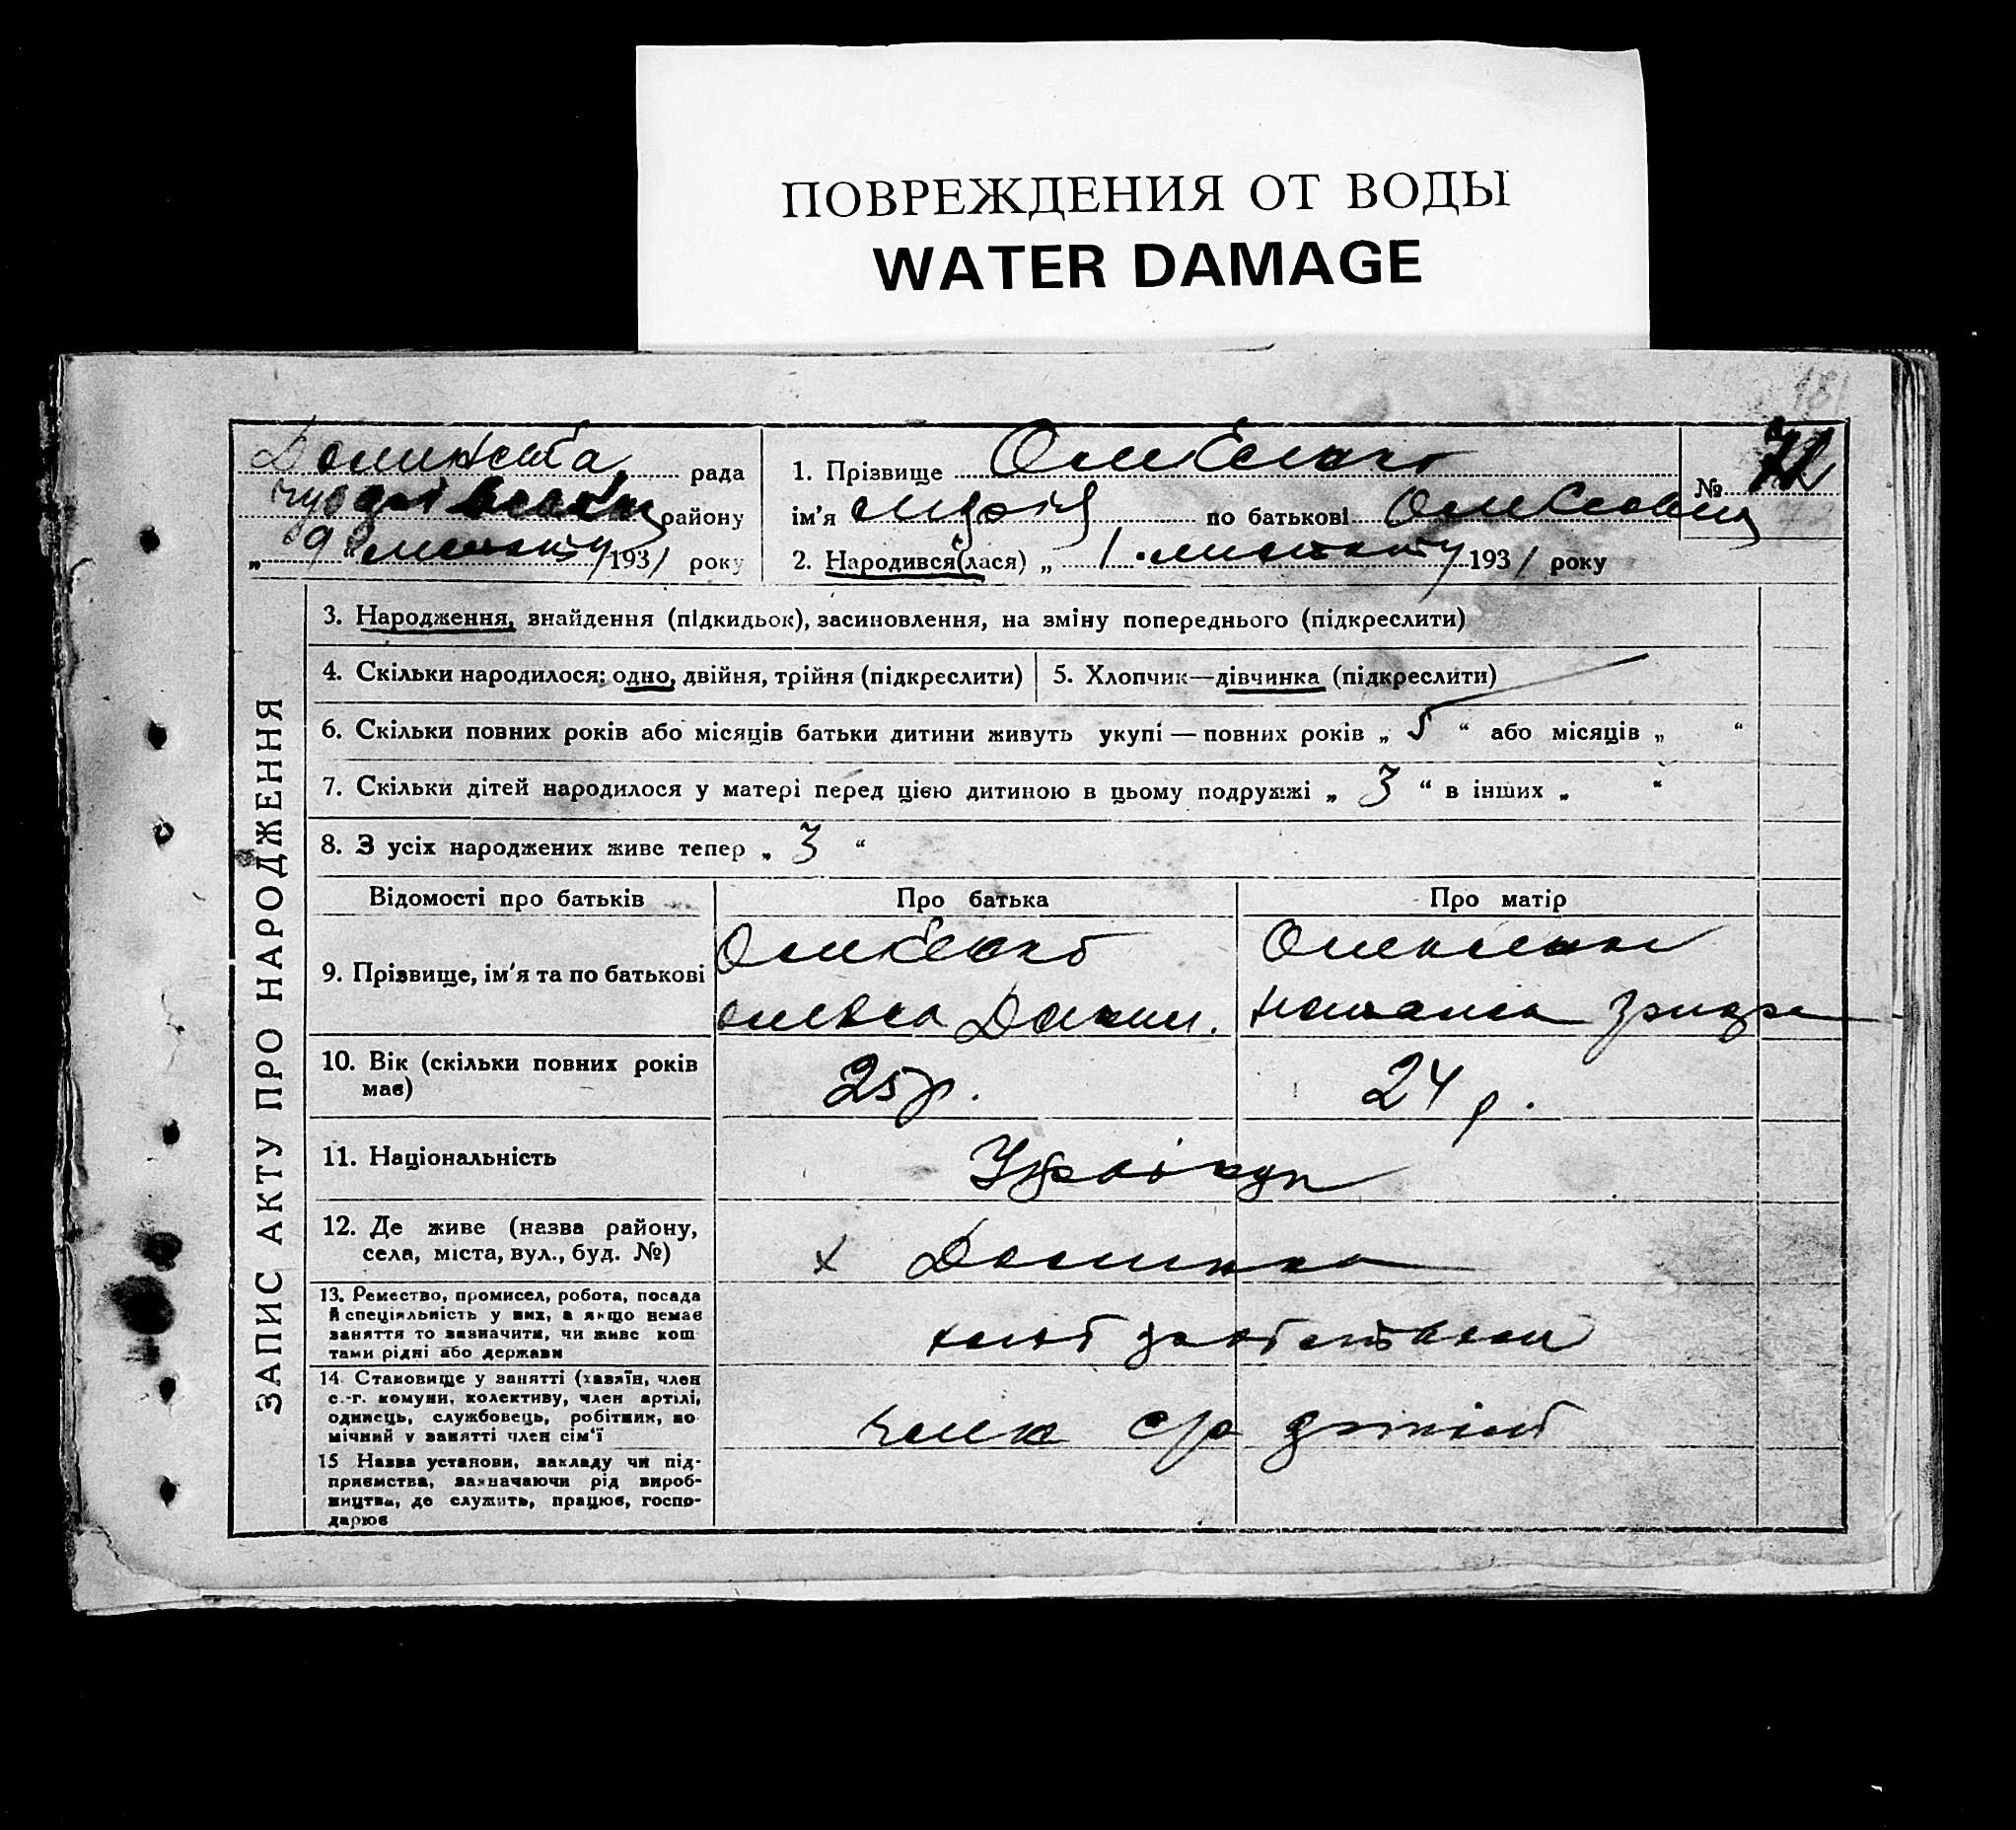 ПОВРЕЖДЕНИЯ ОТ ВОДЫ
WATER DAMAGE
181
ЗАПИС АКТУ ПРО НАРОДЖЕННЯ
Долинська рада
району
„ 9 " листопаду 1931 року
1. Прізвище Олексенко
ім'я Марія по батькові Олексіовна
2. Народився(лася) „ 1 " листопаду 1931 року
№ 72
72
3. Народження, знайдення (підкидьок), засиновлення, на зміну попереднього (підкреслити)
4. Скільки народилося: одно, двійня, трійня (підкреслити)
5. Хлопчик—дівчинка (підкреслити)
6. Скільки повних років або місяців батьки дитини живуть укупі — повних років „ 5 “ або місяців „ “
7. Скільки дітей народилося у матері перед цією дитиною в цьому подружжі „ 3 “ в інших „ “
8. З усіх народжених живе тепер „ 3 “
Відомості про батьків
Про батька
Про матір
9. Прізвище, ім'я та по батькові
Олексенко
Олекса
Олексенко
Наталка
10. Вік (скільки повних років має)
25 р.
24 р.
11. Національність
Українці
12. Де живе (назва району,
села, міста, вул., буд. №)
х Долинка
13. Ремество, промисел, робота, посада
й спеціяльність у них, а якщо немає
заняття то зазначити, чи живе кош
тами рідні або держави
14. Становище у занятті (хазяїн, член
с.-г. комуни, колективу, член артілі,
одинець, службовець, робітник, по
мічний у занятті член сім'ї
член с/г артілі
15 Назва установи, закладу чи під-
приємства, зазначаючи рід вироб-
ництва, де служить, працює, госпо-
дарює